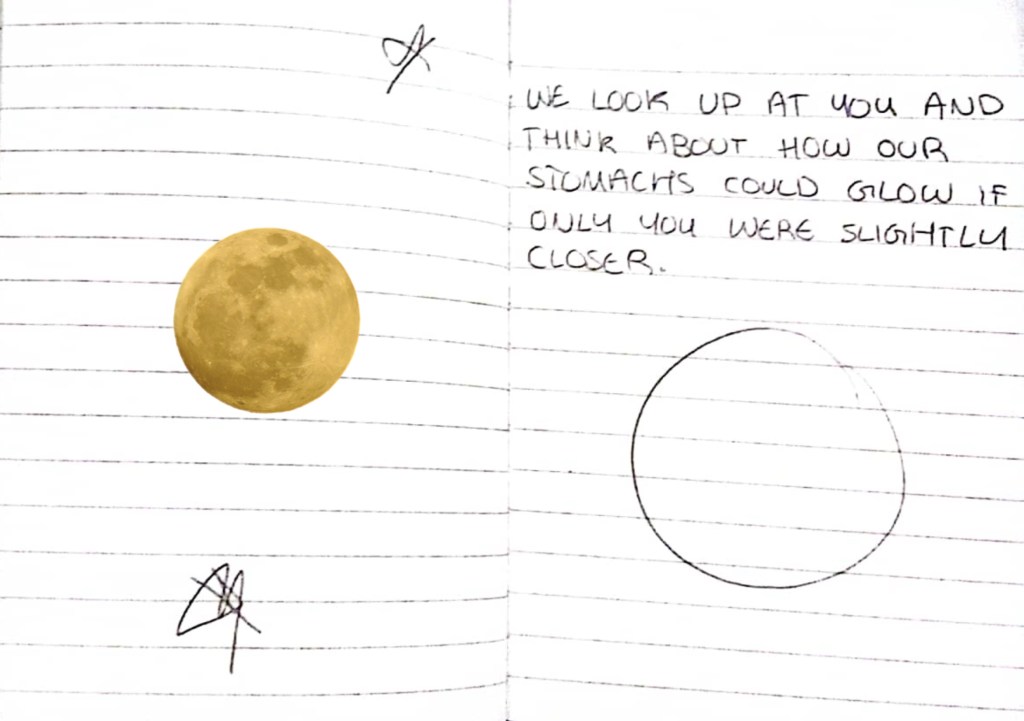 WE LOOK UP AT YOU AND
THINK ABOUT HOW OUR
STOMACHS COULD GLOW IF
ONLY YOU WERE SLIGHTLY
CLOSER.